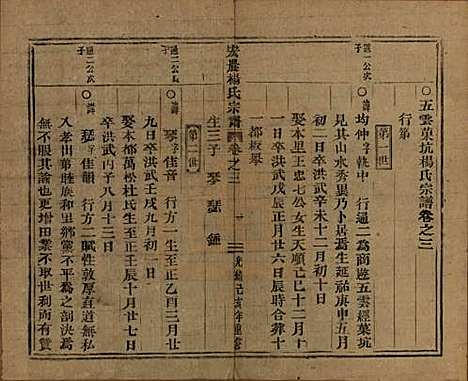 ○五雲菓坑楊氏宗譜卷之三
行第
第一世
通一公次子
○諱均仲字執中 行通二爲商遊五雲經菓坑
見其山水秀異乃卜居焉生延祐庚申五月
初二日卒洪武辛未十二月初十日
娶本里王忠七公女生天順己巳十月初
一日卒洪武戊辰二月廿六日辰時合葬十
一都板㟁
生三子 琴 瑟 鍾
宏農楊氏宗譜 卷之三
光緒己亥年重修
第二世
通二公長子
○諱琴字佳音 行方一生至正乙酉三月廿
九日卒洪武壬戌九月初一日
娶本都萬松杜氏生至正壬辰十月廿七日
卒洪武丙子八月十三日
通二公次子
○諱瑟字佳韻 行方二賦性敦厚直道無私
入孝出第睦族和里鄉黨不平爲之剖決爲
無不服其論也更增田業不取世利而有賛